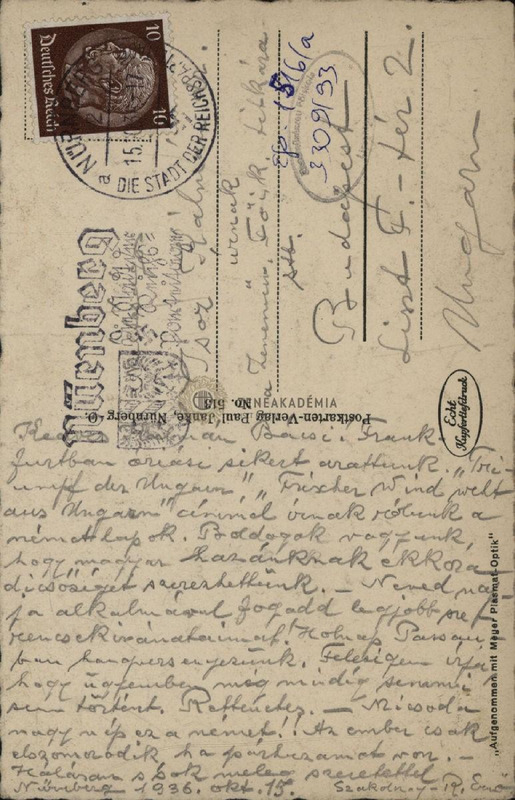 10 10
Deutsches Reich
15.
DIE STADT DER REICHSPARTEITAGE
a
Nürnberg
Isoz Kálmán
úrnak
a Zeneműv. Főisk. titkára
stb.
Budapest
Liszt F.-tér 2.
Ungarn
3309/93
ZENEAKADÉMIA
Postkarten-Verlag Paul Janke, Nürnberg-O.
No. 515
Echt
Kupfertiefdruck
"Aufgenommen mit Meyer Plasmat-Optik"
Kálmán Bácsi! Frank-
furtban óriási sikert arattunk. "Tri-
umpf der Ungarn", "Frischer Wind weht
aus Ungarn" címmel írnak rólunk a
német lapok. Boldogok vagyunk,
hogy magyar hazánknak ekkora
dicsőséget szerezhettünk. — Neved nap-
ja alkalmával fogadd legjobb sze-
rencsekivánataimat! Holnap Passau-
ban hangversenyezünk. Feleségem írja,
hogy ügyemben még mindig semmi
sem történt. Rettenetes. — Micsoda
nagy nép ez a német!! Az ember csak
elszomorodik ha párhuzamot von. —
Hálásan s sok meleg szeretettel
Nürnberg 1936. okt. 15. Szakolczay-R. Ernő